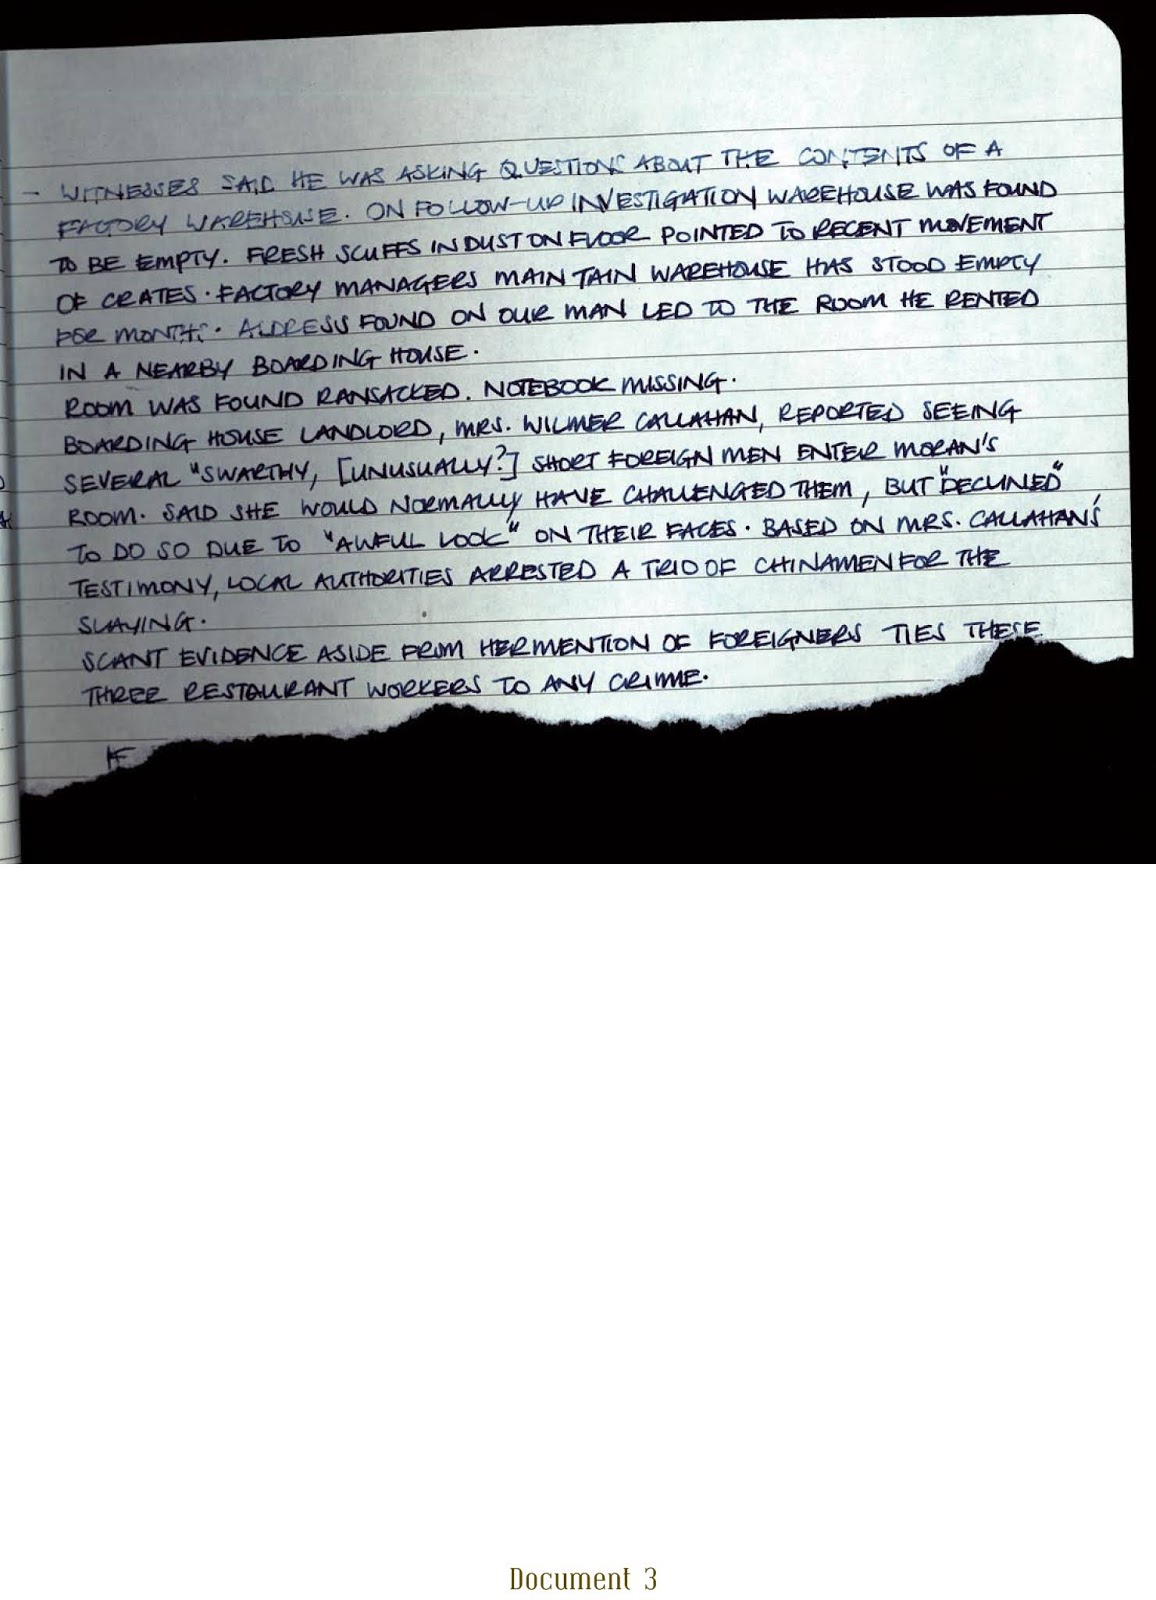 - WITNESSES SAID HE WAS ASKING QUESTIONS ABOUT THE CONTENTS OF A
FACTORY WAREHOUSE. ON FOLLOW-UP INVESTIGATION WAREHOUSE WAS FOUND
TO BE EMPTY. FRESH SCUFFS IN DUST ON FLOOR POINTED TO RECENT MOVEMENT
OF CRATES. FACTORY MANAGERS MAINTAIN WAREHOUSE HAS STOOD EMPTY
FOR MONTHS. ADDRESS FOUND ON OUR MAN LED TO THE ROOM HE RENTED
IN A NEARBY BOARDING HOUSE.
ROOM WAS FOUND RANSACKED. NOTEBOOK MISSING.
BOARDING HOUSE LANDLORD, MRS. WILMER CALLAHAN, REPORTED SEEING
SEVERAL "SWARTHY, [UNUSUALLY?] SHORT FOREIGN MEN ENTER MORAN'S
ROOM. SAID SHE WOULD NORMALLY HAVE CHALLENGED THEM, BUT "DECLINED"
TO DO SO DUE TO "AWFUL LOOK" ON THEIR FACES. BASED ON MRS. CALLAHAN'S
TESTIMONY, LOCAL AUTHORITIES ARRESTED A TRIO OF CHINAMEN FOR THE
SLAYING.
SCANT EVIDENCE ASIDE FROM HER MENTION OF FOREIGNERS TIES THESE
THREE RESTAURANT WORKERS TO ANY CRIME.
Document 3